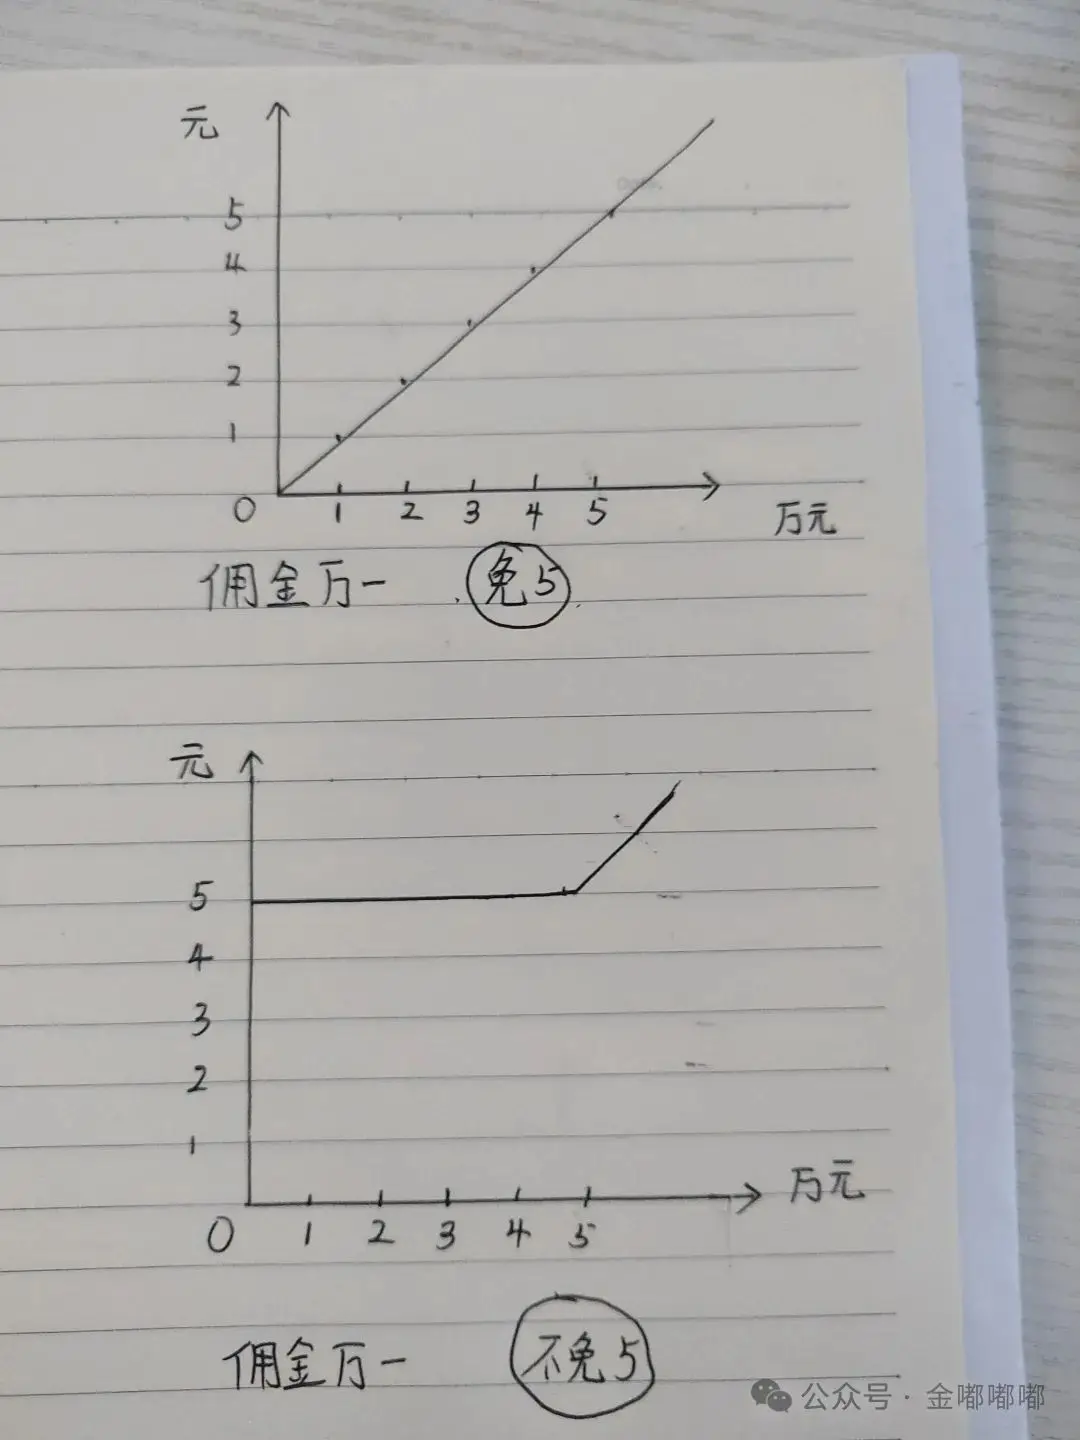 元
5
4
3
2
1
0 1 2 3 4 5 万元
佣金万一 免5
元
5
4
3
2
1
万元
0 1 2 3 4 5
佣金万一 不免5
公众号·金嘟嘟嘟